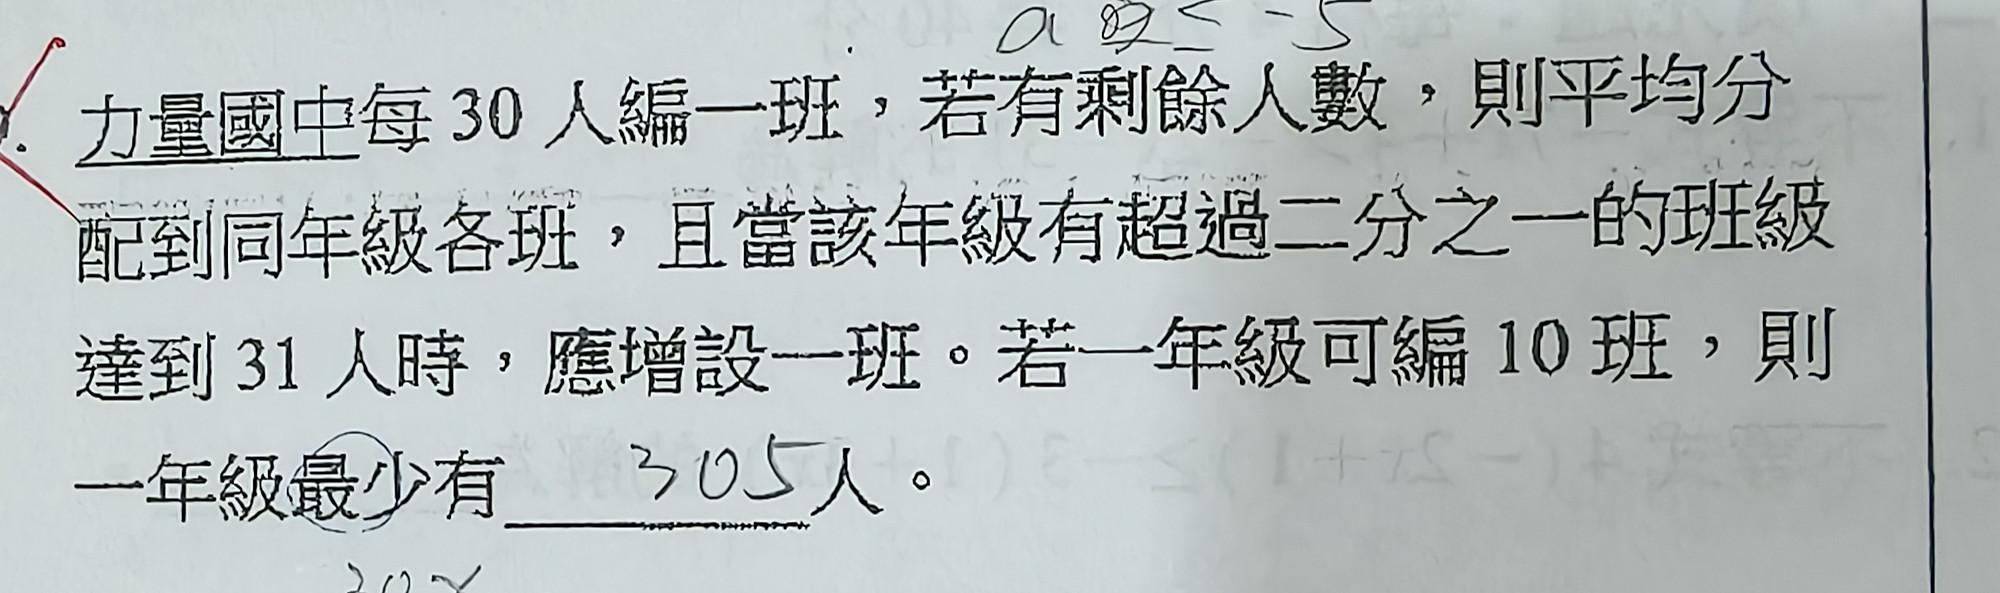 a ≤ -5
力量國中每 30 人編一班，若有剩餘人數，則平均分
配到同年級各班，且當該年級有超過二分之一的班級
達到 31 人時，應增設一班。若一年級可編 10 班，則
一年級最少有 305 人。